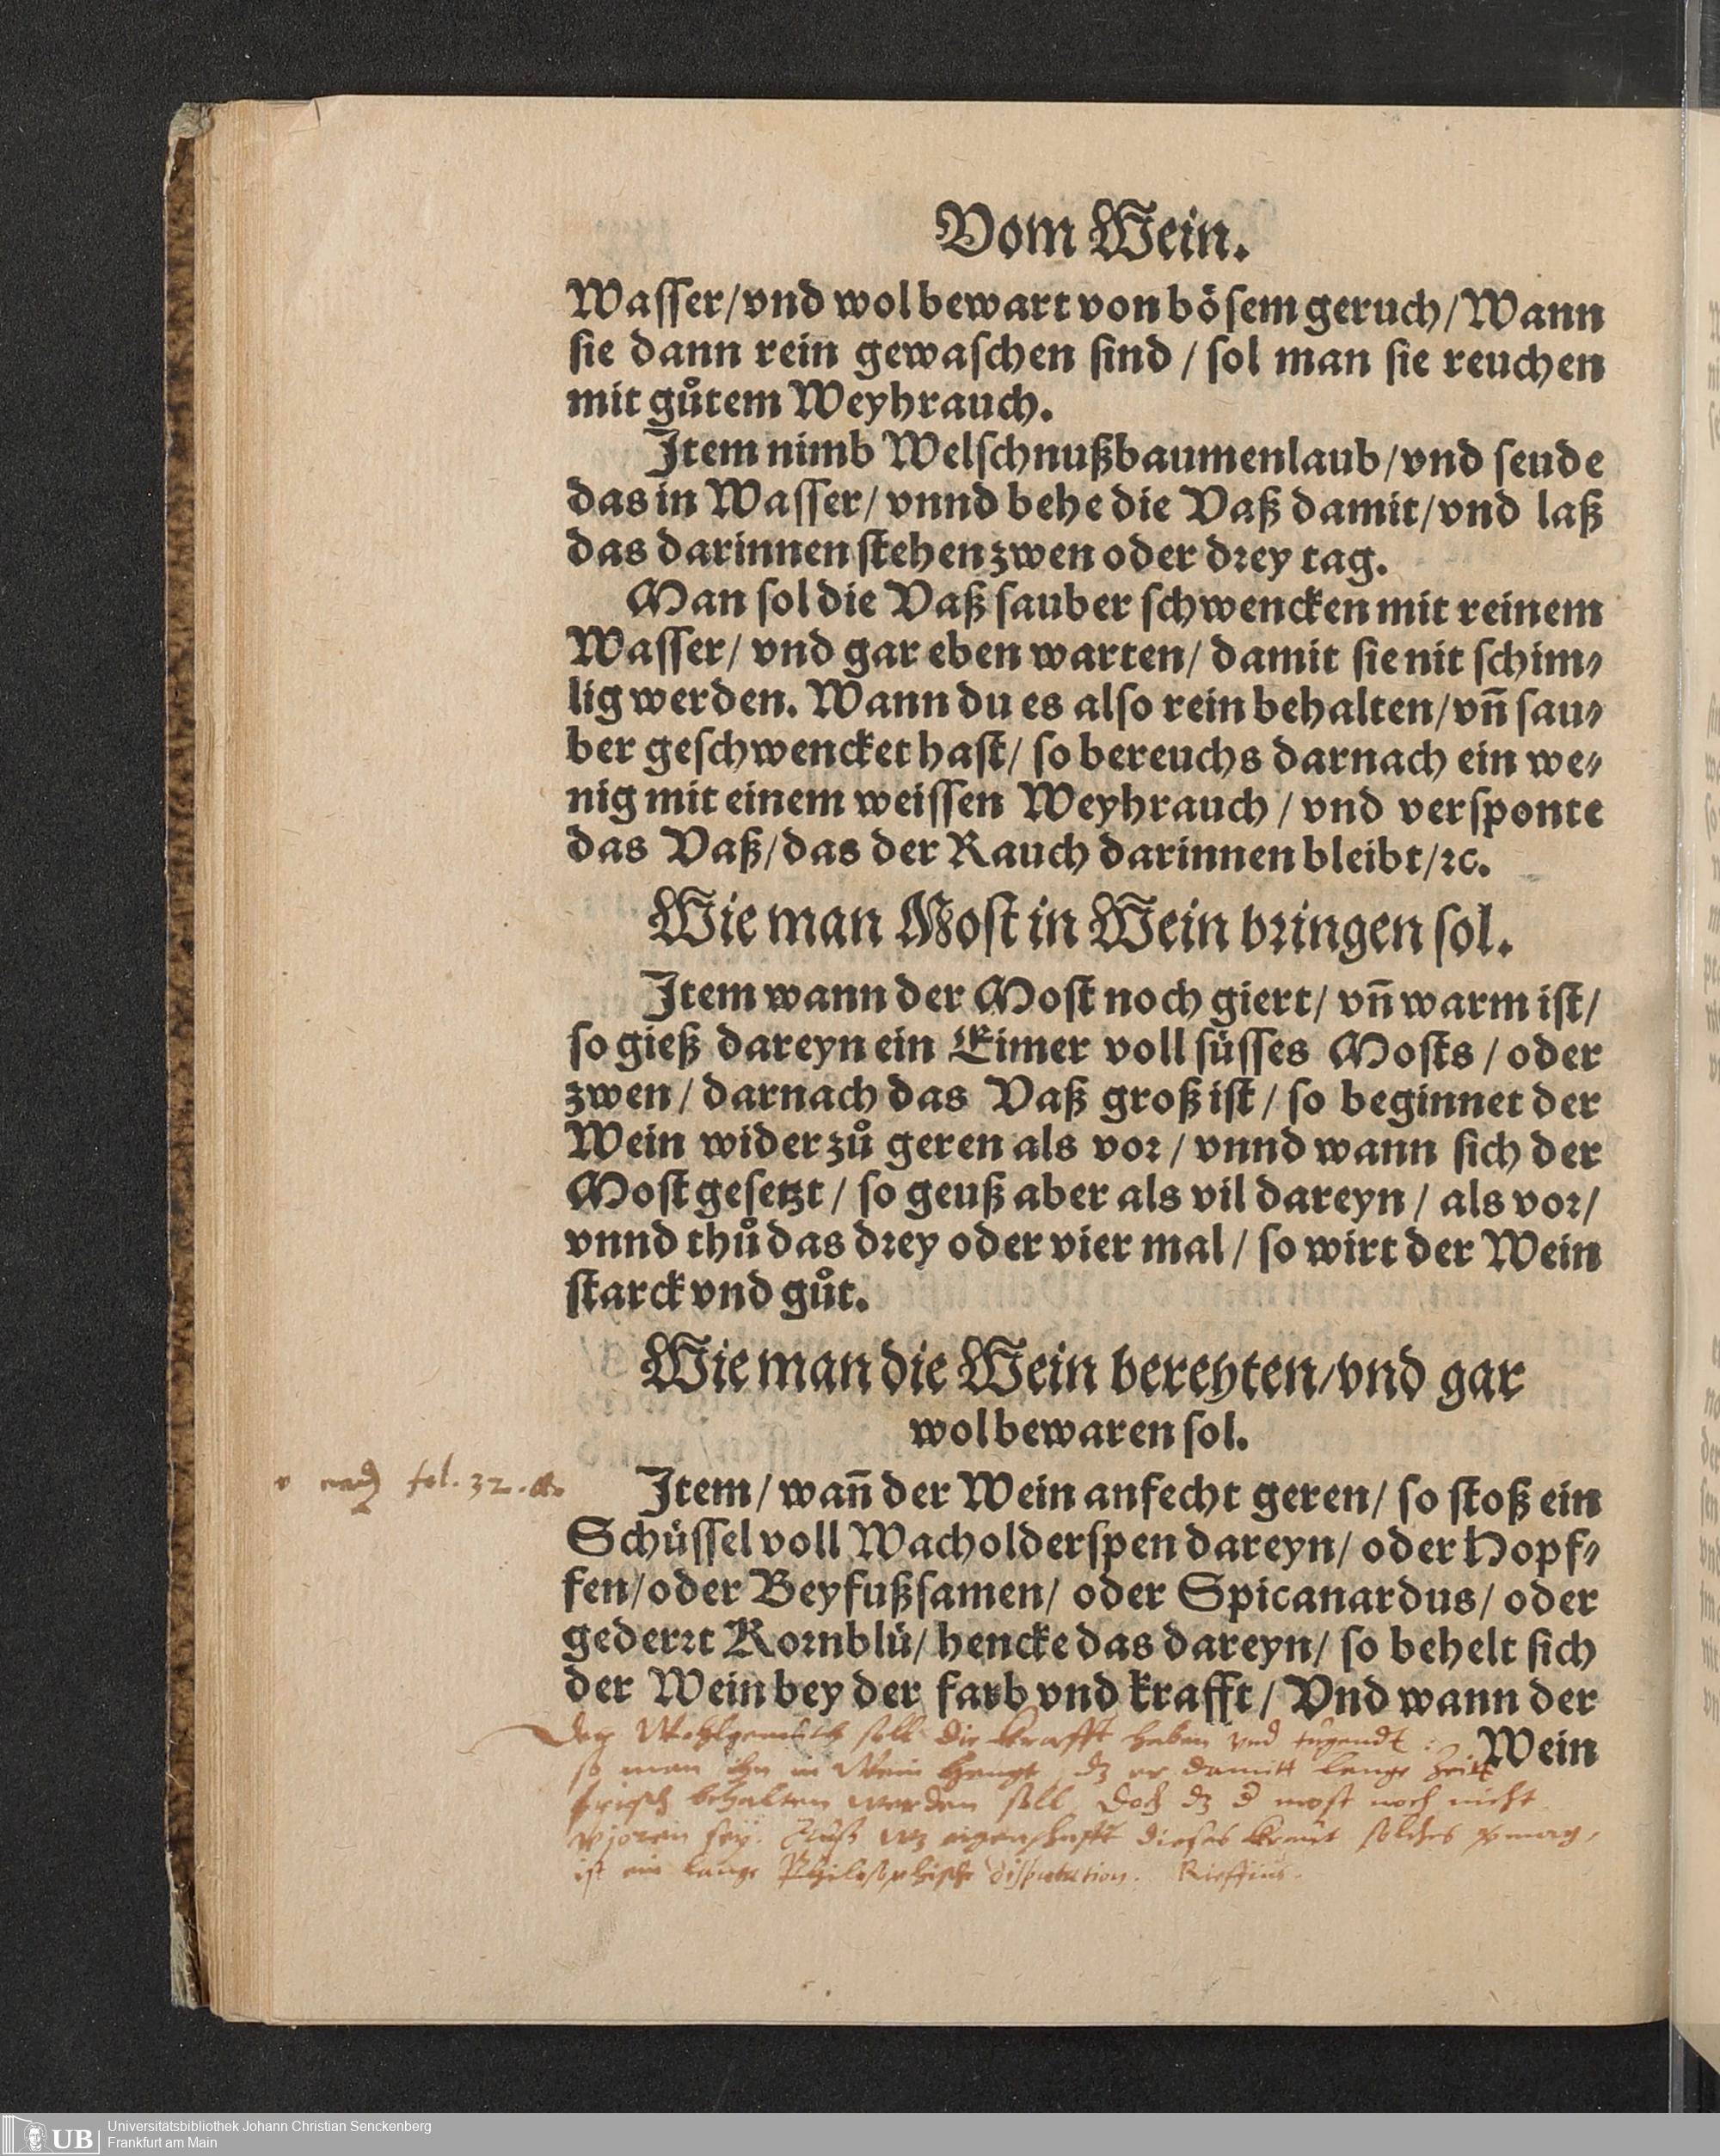 Vom Wein.
Waſſer/vnd wol bewart von böſem geruch/Wann
ſie dann rein gewaſchen ſind / ſol man ſie reuchen
mit gůtem Weyhrauch.
Item nimb Welſchnußbaumenlaub/vnd ſeude
das in Waſſer/ vnnd behe die Vaß damit/vnd laß
das darinnen ſtehen zwen oder drey tag.
Man ſol die Vaß ſauber ſchwencken mit reinem
Waſſer/ vnd gar eben warten/ damit ſie nit ſchim-
lig werden. Wann du es alſo rein behalten/vn̄ ſau-
ber geſchwencket haſt/ ſo bereuchs darnach ein we-
nig mit einem weiſſen Weyhrauch / vnd verſponte
das Vaß/das der Rauch darinnen bleibt/ꝛc.
Wie man Moſt in Wein bringen ſol.
Item wann der Moſt noch giert/ vn̄ warm iſt/
ſo gieß dareyn ein Eimer voll ſüſſes Moſts / oder
zwen / darnach das Vaß groß iſt / ſo beginnet der
Wein wider zů geren als vor / vnnd wann ſich der
Moſt geſetzt / ſo geuß aber als vil dareyn / als vor/
vnnd thů das drey oder vier mal / ſo wirt der Wein
ſtarck vnd gůt.
Wie man die Wein bereyten/vnd gar
wol bewaren ſol.
fol. 32.
Item / wan̄ der Wein anfecht geren/ ſo ſtoß ein
Schüſſel voll Wacholderſpen dareyn/ oder Hopf-
fen/oder Beyfußſamen/ oder Spicanardus/ oder
gederrt Kornblü/ hencke das dareyn/ ſo behelt ſich
der Wein bey der farb vnd krafft / Vnd wann der
Wein
Der Wohlgemuth soll die krafft haben vnd tugendt
so man ihn in Wein hengt, dz er damitt lange Zeitt
frisch behalten werden soll. Doch dz d most noch nicht
sey. Auß wz eigenschafft dieses kraut solches vermag,
ist ein lange Philosophische disputution. Rieffius.
Universitätsbibliothek Johann Christian Senckenberg
Frankfurt am Main
UB